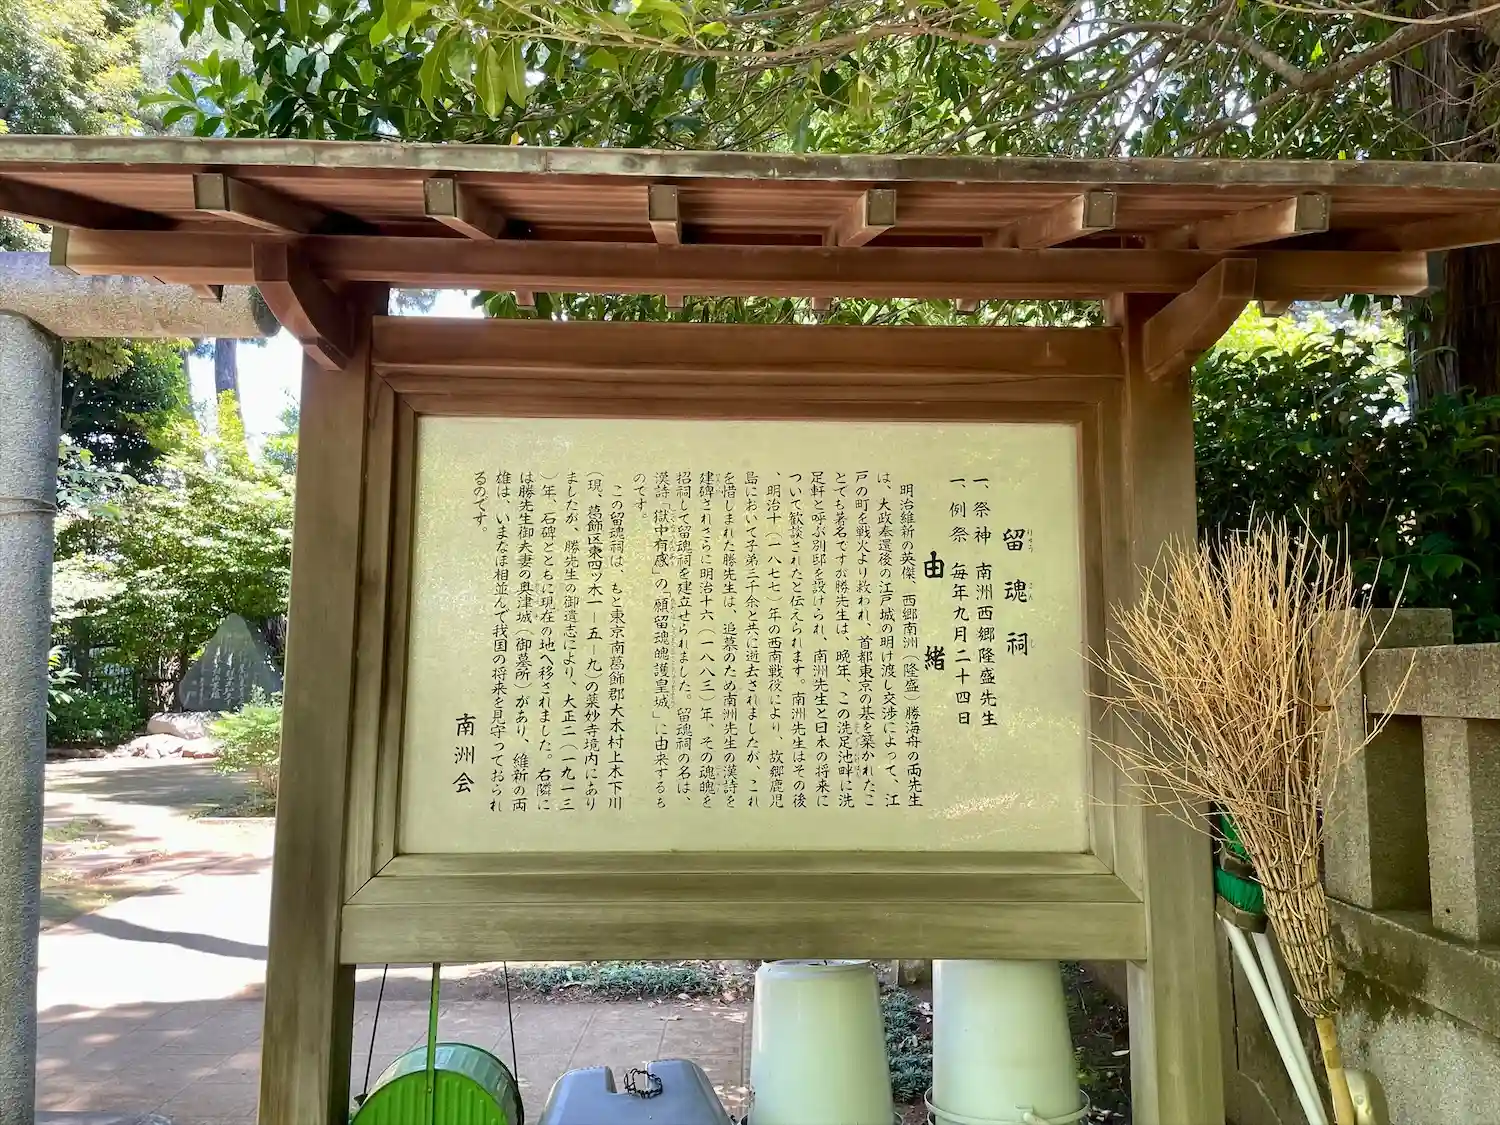 留魂祠
一、祭神 南洲西郷隆盛先生
一、例祭 毎年九月二十四日
由緒
明治維新の英傑、西郷南洲（隆盛）勝海舟の両先生
は、大政奉還後の江戸城の明け渡し交渉によって、江
戸の町を戦火より救われ、首都東京の基を築かれたこ
とでも著名ですが勝先生は、晩年、この洗足池畔に洗
足軒と呼ぶ別邸を設けられ、南洲先生と日本の将来に
ついて歓談されたと伝えられます。南洲先生はその後
、明治十（一八七七）年の西南戦役により、故郷鹿児
島において子弟三千余と共に逝去されましたが、これ
を惜しまれた勝先生は、追慕のため南洲先生の漢詩を
建碑されさらに明治十六（一八八三）年、その魂魄を
招祠して留魂祠を建立せられました。留魂祠の名は、
漢詩「獄中有感」の「願留魂魄護皇城」に由来するも
のです。
この留魂祠は、もと東京南葛飾郡大木村上木下川
（現、葛飾区東四ツ木一－五－九）の薬妙寺境内にあり
ましたが、勝先生の御遺志により、大正二（一九一三
）年、石碑とともに現在の地へ移されました。右隣に
は勝先生御夫妻の奥津城（御墓所）があり、維新の両
雄は、いまなほ相並んで我国の将来を見守っておられ
るのです。
南洲会